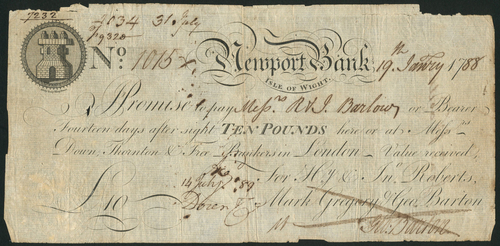 7232
9034 31 July
9320
No. 1015 Newport Bank 19th Janry 1788
ISLE OF WIGHT.
I Promise to pay Messrs R & J. Barlow or Bearer
Fourteen days after sight TEN POUNDS here or at Messrs
Down, Thornton & Free Bankers in London Value received,
14 July 89 For HJ & Jn. Roberts,
£10 Mark Gregory & Geo. Barton
Geo: Barton